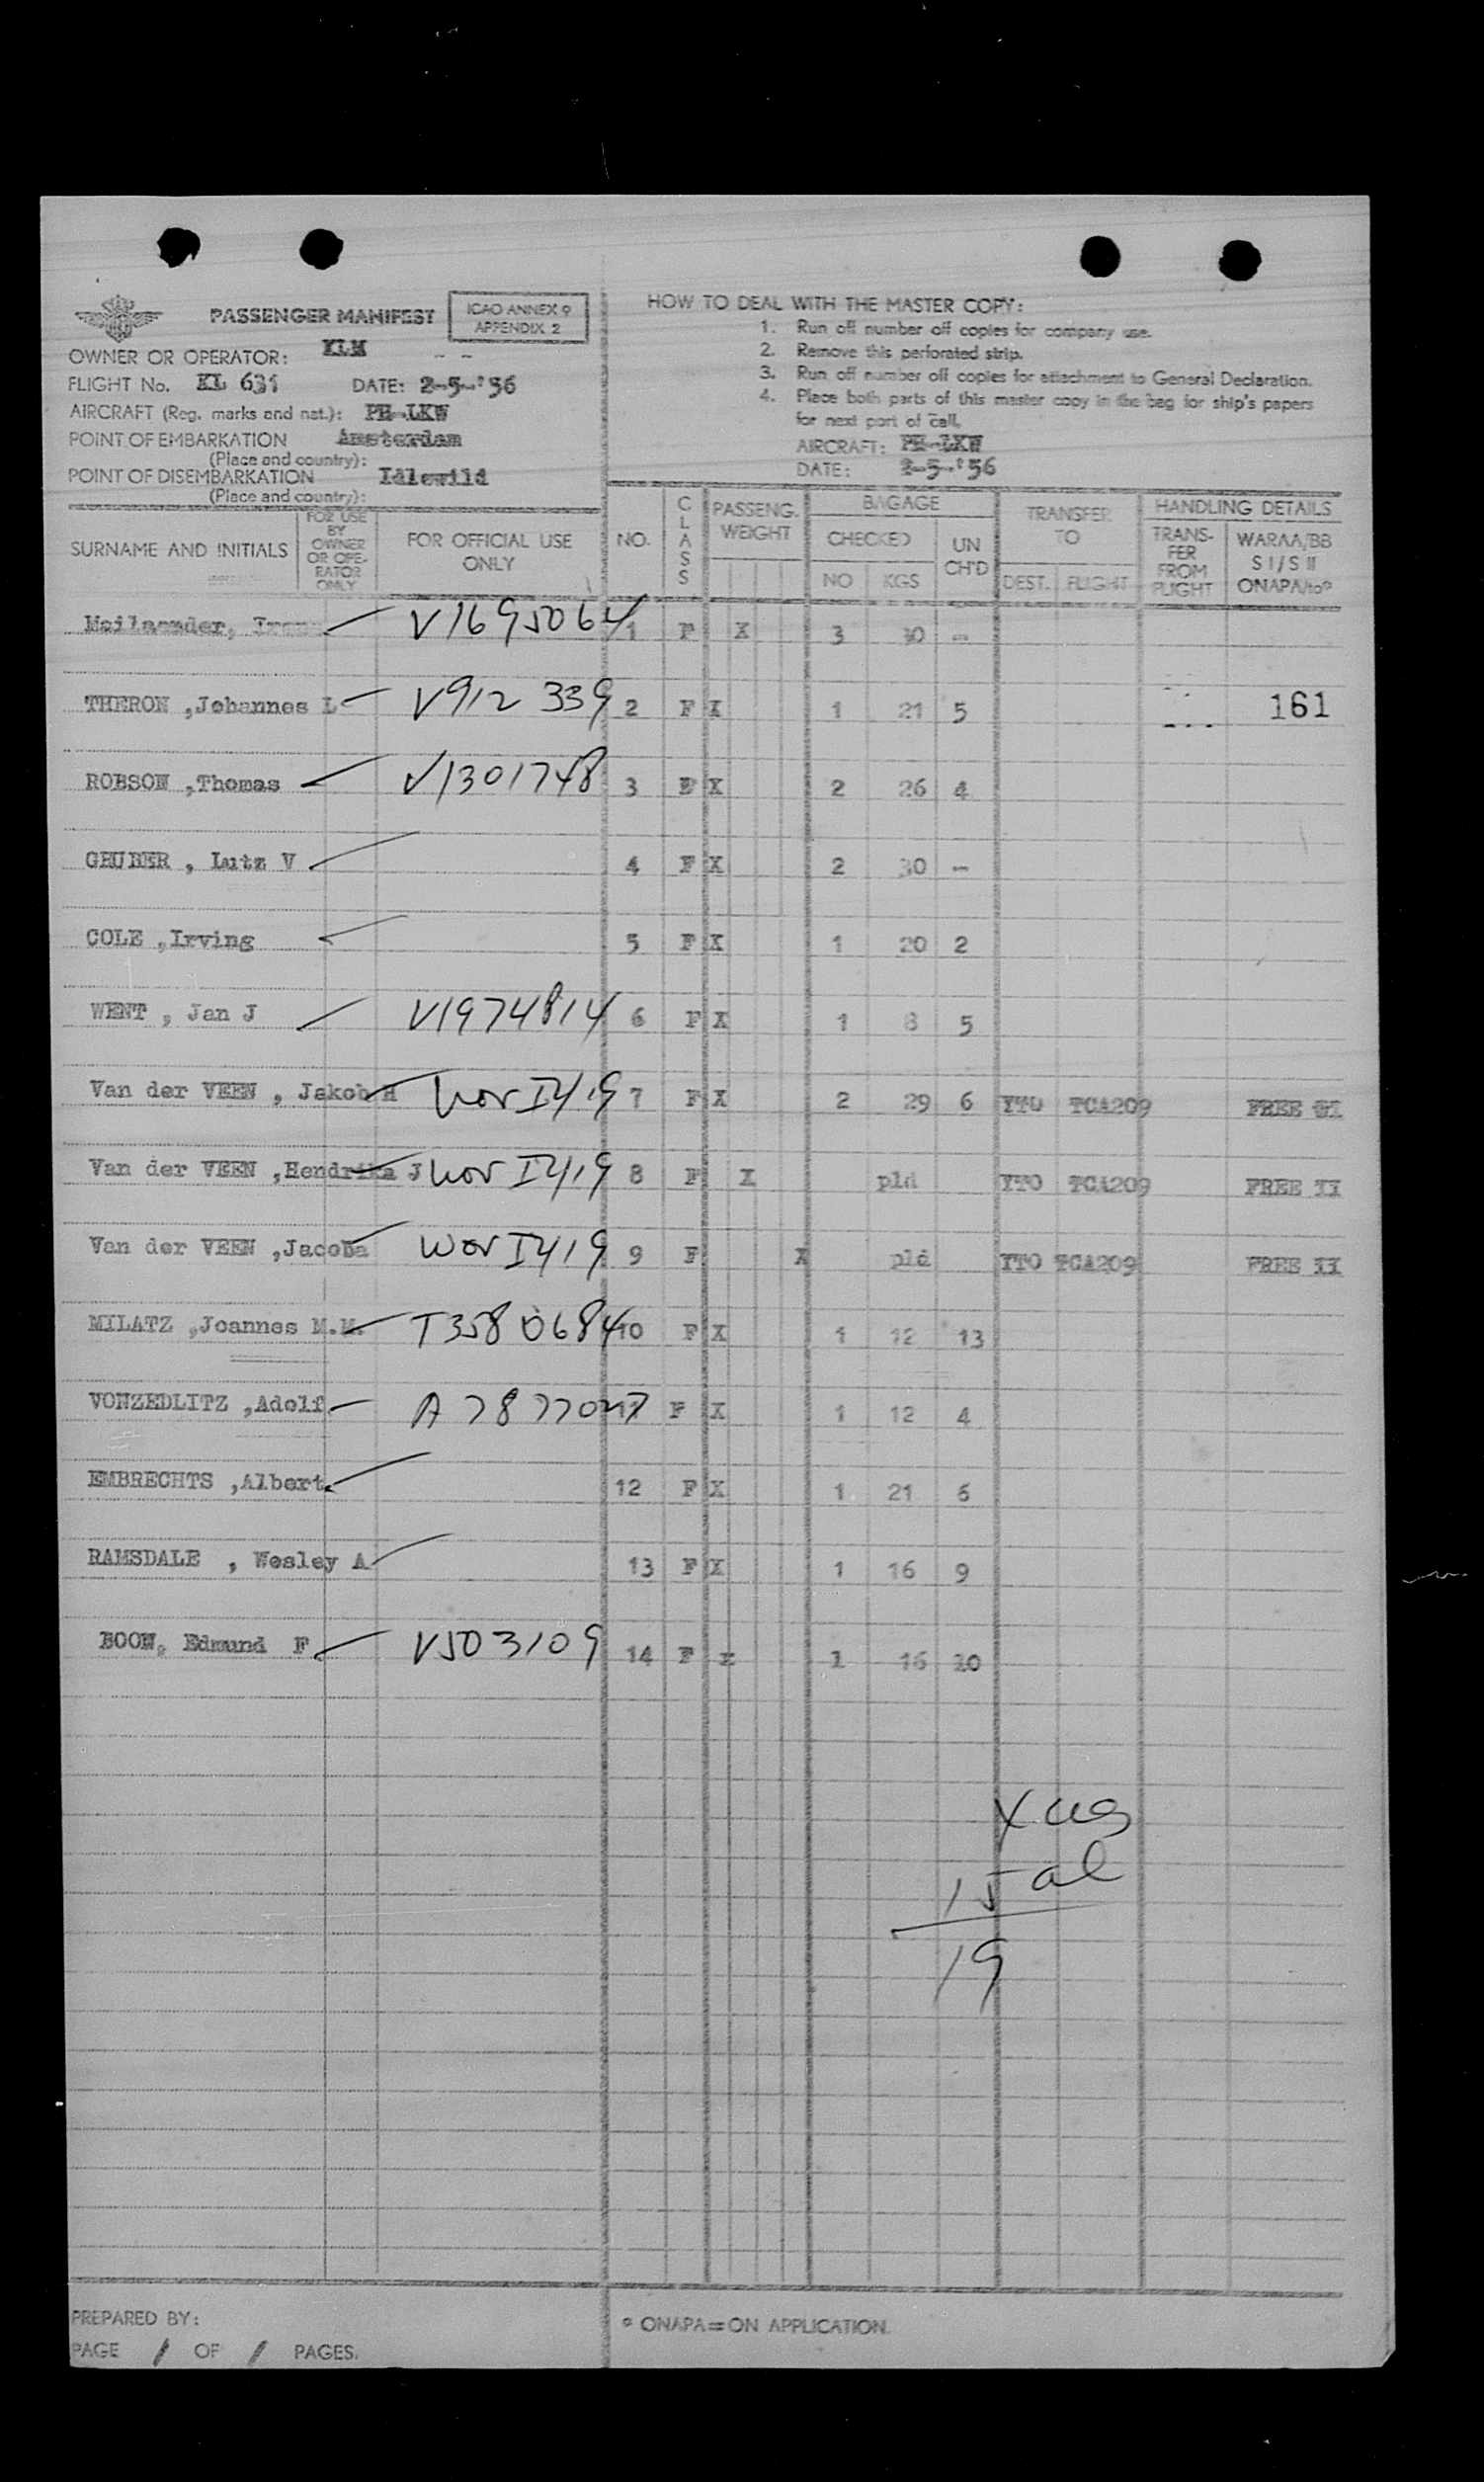 PASSENGER MANIFEST
ICAO ANNEX 9
APPENDIX 2
OWNER OR OPERATOR: KLM
FLIGHT No. KL 631 DATE: 2-5-'56
AIRCRAFT (Reg. marks and nat.): PH-LKW
POINT OF EMBARKATION Amsterdam
(Place and country):
POINT OF DISEMBARKATION Idlewild
(Place and country):
HOW TO DEAL WITH THE MASTER COPY:
1. Run off number off copies for company use.
2. Remove this perforated strip.
3. Run off number off copies for attachment to General Declaration.
4. Place both parts of this master copy in the bag for ship's papers
for next port of call.
AIRCRAFT: PH-LKW
DATE: 2-5-'56
SURNAME AND INITIALS
FOR USE BY OWNER OR OPE-RATOR ONLY
FOR OFFICIAL USE ONLY
NO.
CLASS
PASSENG. WEIGHT
BAGAGE
CHECKED
NO KGS
UN CH'D
TRANSFER TO
DEST. FLIGHT
HANDLING DETAILS
TRANS-FER FROM FLIGHT
WARAA/BB S I/S II ONAPA/to*
V1695064 1 F X 3 30 -
THERON ,Johannes L V912 339 2 F X 1 21 5 161
ROBSON ,Thomas V1301748 3 F X 2 26 4
GRUBER , Lutz V 4 F X 2 30 -
COLE ,Irving 5 F X 1 20 2
WENT , Jan J V1974814 6 F X 1 8 5
Van der VEEN , Jakob H 7 F X 2 29 6 YTO TCA209 FREE
Van der VEEN ,Hendrika J 8 F X pld YTO TCA209 FREE II
Van der VEEN ,Jacoba 9 F X pld YTO TCA209 FREE II
MILATZ ,Joannes M.M. T3580684 10 F X 1 12 13
VONZEDLITZ ,Adolf F X 1 12 4
EMBRECHTS ,Albert 12 F X 1 21 6
RAMSDALE , Wesley A 13 F X 1 16 9
BOON, Edmund F V503109 14 F X 1 16 10
15 al
19
PREPARED BY:
PAGE 1 OF 1 PAGES.
* ONAPA=ON APPLICATION.